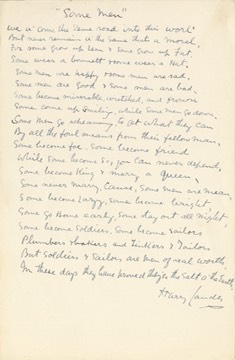 "Some Men"
We a' come the same road into this worl'
But never remain is the same that a moral,
For some grow up lean & some grow up Fat,
Some wear a bonnett some wear a Hat,
Some men are happy some men are sad,
Some men are good & some men are bad,
Some become miserable, wretched, and
Some come up smiling, while some men go down.
Some men go scheming to get what they can
By all the foul means from their fellow man,
Some become foe. Some become friend
While some become so, you can never depend,
Some become King & marry a Queen,
Some never marry, Cause, some men are mean,
Some become Lazy, some become bright
Some go home early, some stay out all night,
Some become Soldiers. Some become Sailors
Plumbers & bakers and Tinkers & Tailors
But Soldiers & Sailors are men of real worth,
In these days they have proved they're the Salt o' the Earth
Harry Lauder